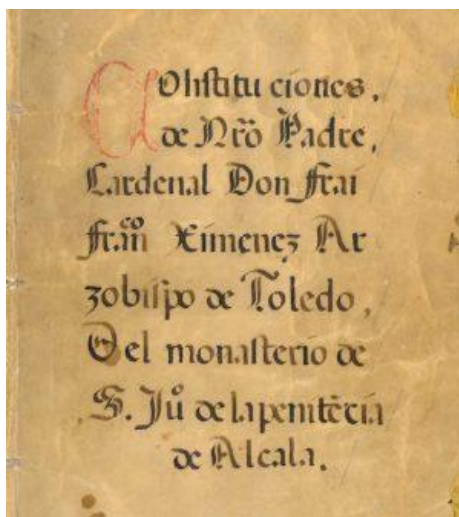 COnstitu ciones,
de Nr̃o Padre,
Cardenal Don frai
fran̄co Ximenez Ar
zobispo de Toledo,
Del monasterio de
S. Juº de la penitẽcia
de Alcala.